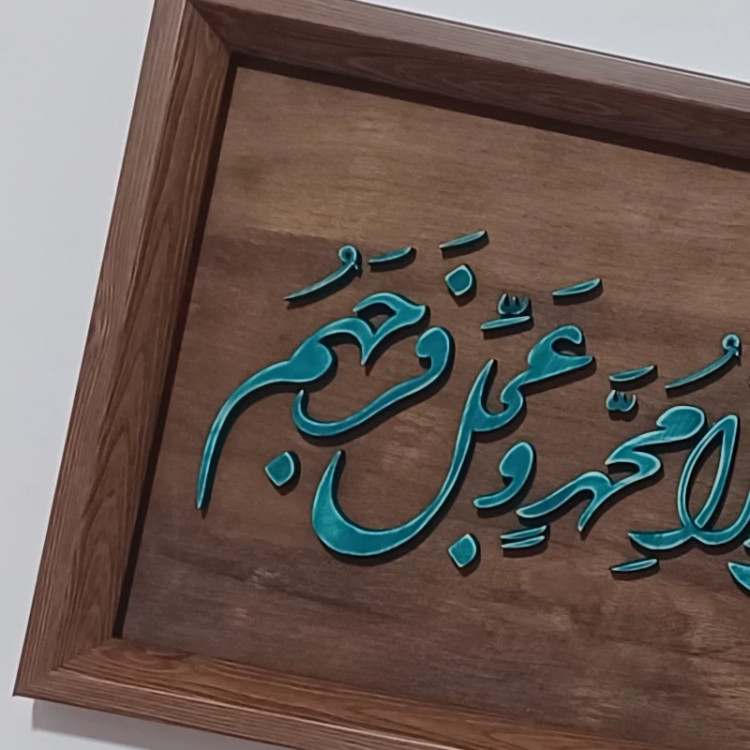 مُحَمَّدٍ وَ عَجِّلْ فَرَجَهُمْ